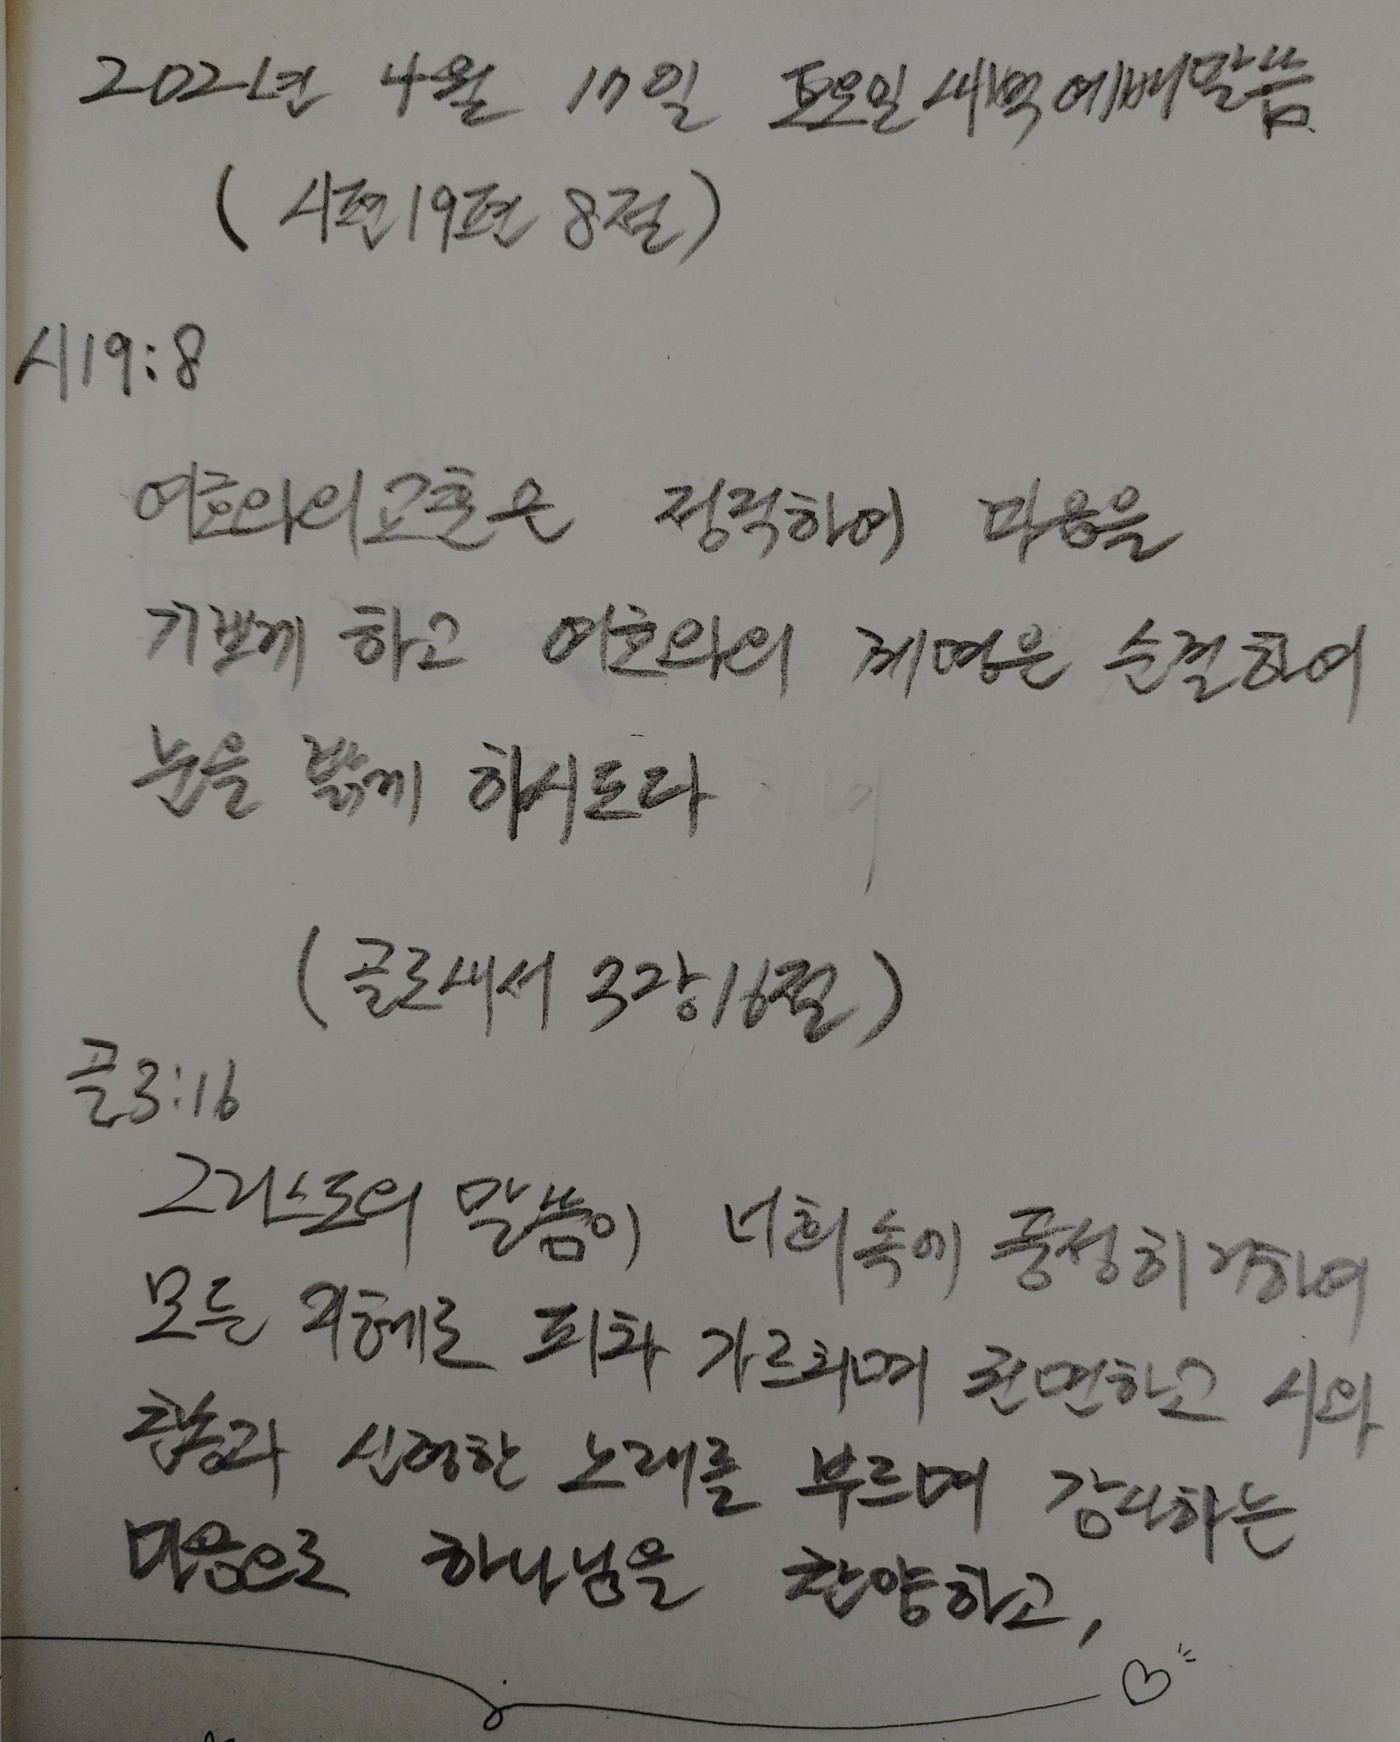 2021년 4월 17일 토요일 새벽예배말씀
(시편19편 8절)
시19:8
여호와의 교훈은 정직하여 마음을
기쁘게 하고 여호와의 계명은 순결하여
눈을 밝게 하시도다
(골로새서 3장16절)
골3:16
그리스도의 말씀이 너희 속에 풍성히 거하여
모든 지혜로 피차 가르치며 권면하고 시와
찬송과 신령한 노래를 부르며 감사하는
마음으로 하나님을 찬양하고,